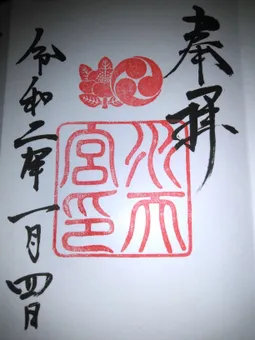 奉拝
水天宮印
令和二年一月四日